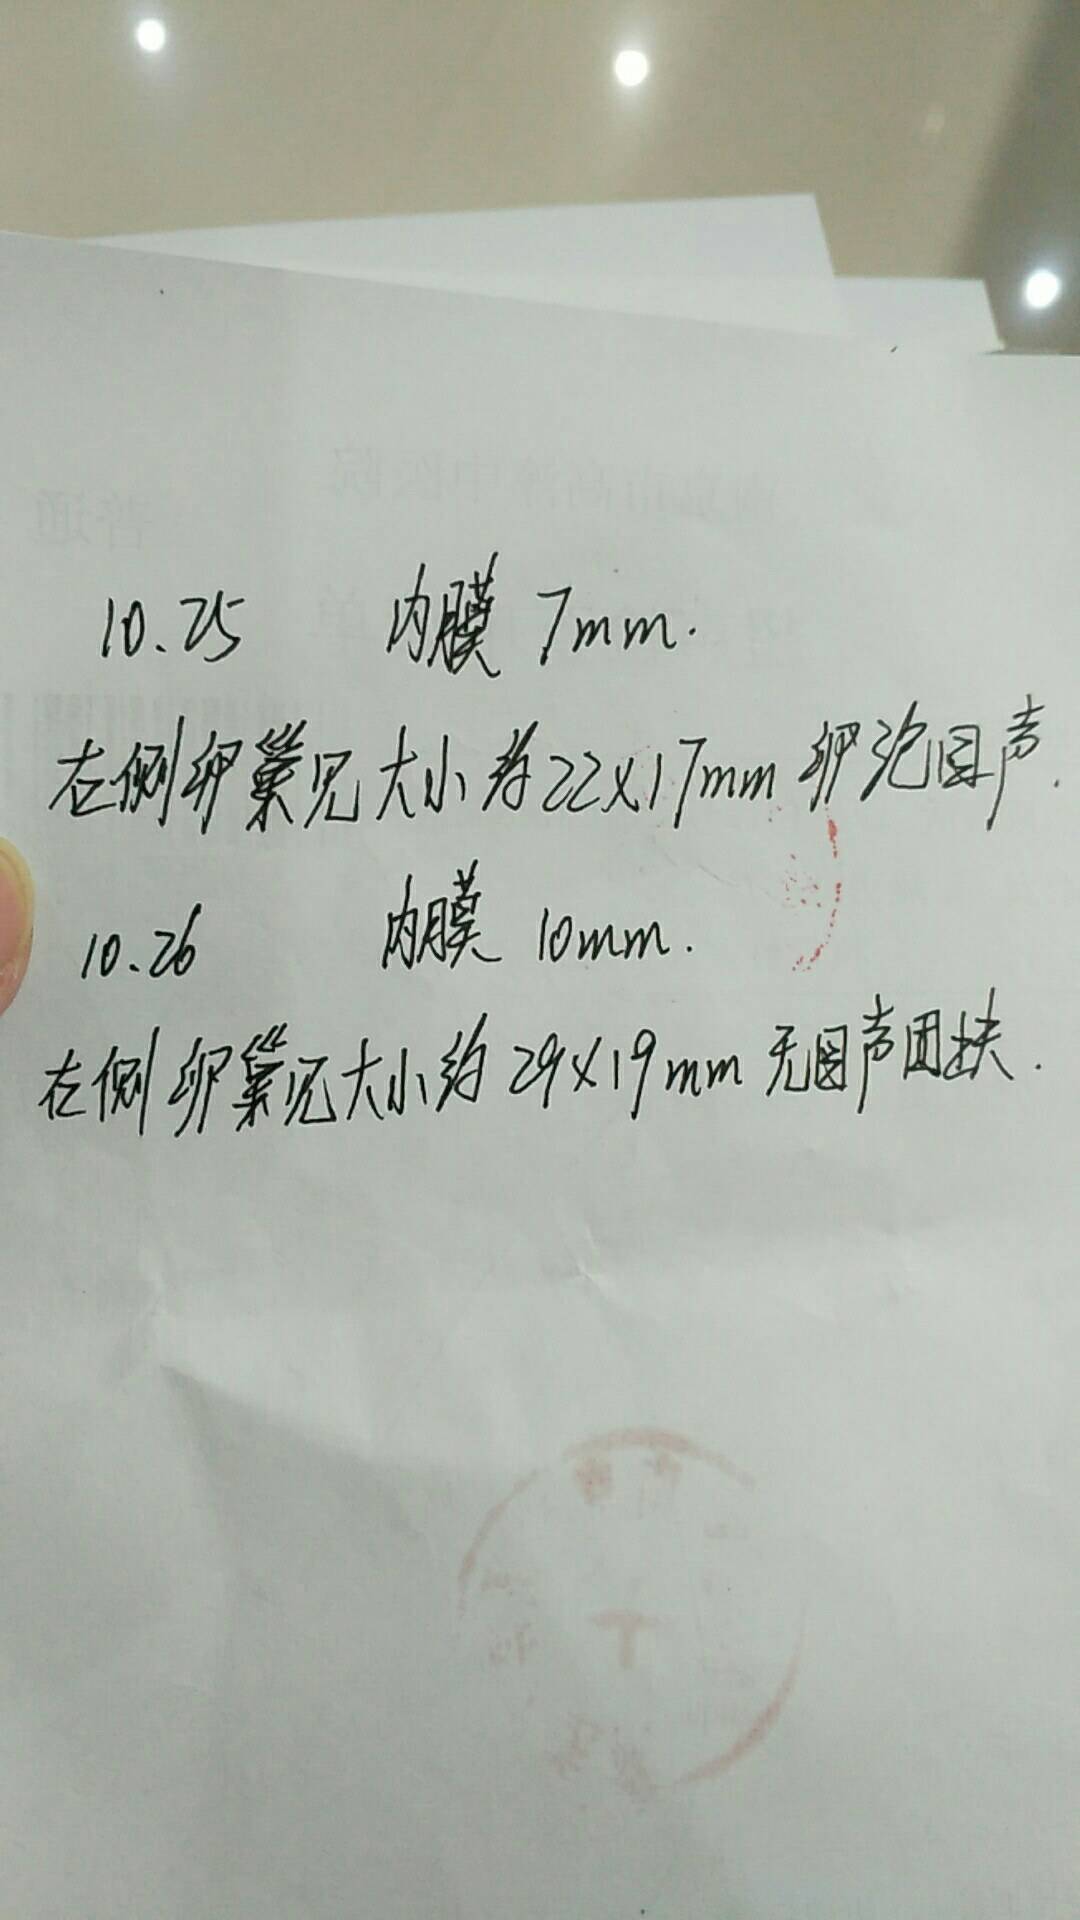 10.25 内膜 7mm.
左侧卵巢见大小为22×17mm 卵泡回声.
10.26 内膜 10mm.
左侧卵巢见大小约29×19mm 无回声团块.